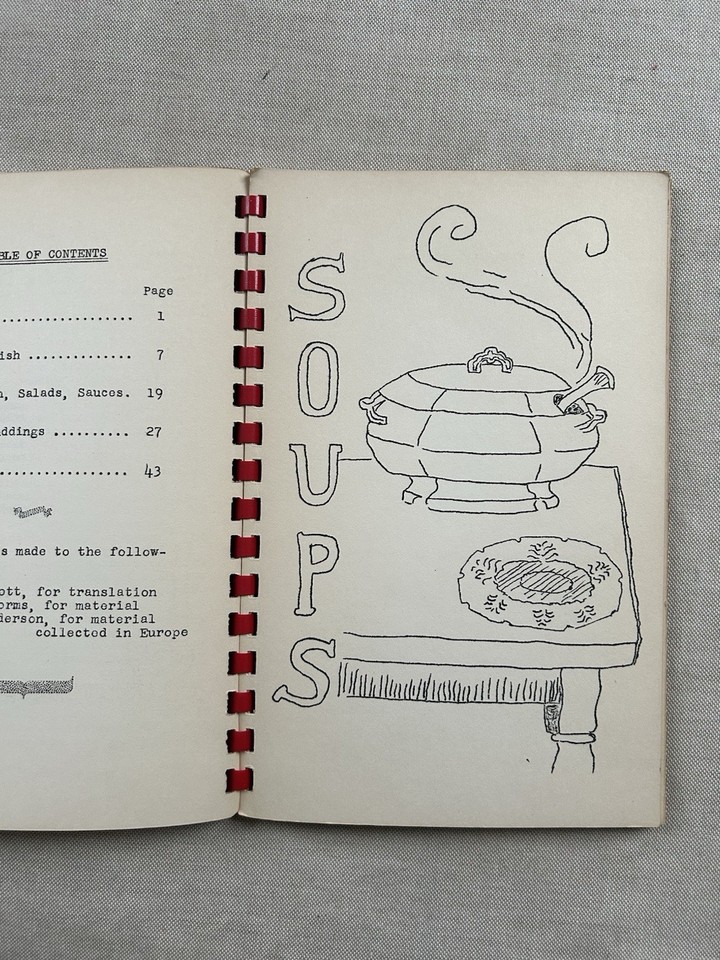 BLE OF CONTENTS
Page
.................. 1
ish .............. 7
n, Salads, Sauces. 19
ddings .......... 27
................. 43
s made to the follow-
ott, for translation
orms, for material
derson, for material
collected in Europe
SOUPS